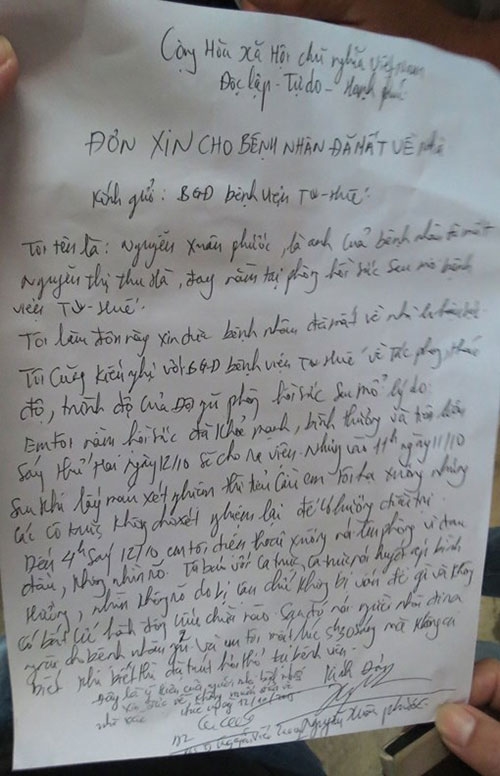 Cộng Hòa xã Hội chủ nghĩa Việt nam
Độc lập - Tự do - Hạnh phúc
ĐƠN XIN CHO BỆNH NHÂN ĐÃ MẤT VỀ nhà
Kính gửi: BGĐ bệnh viện TW-Huế
Tôi tên là: Nguyễn Xuân phước, là anh của bệnh nhân đã mất
Nguyễn thị thu Hà, đang nằm tại phòng hồi sức sau mổ bệnh
viện TW-Huế
Tôi làm đơn này xin đưa bệnh nhân đã mất về nhà
Tôi cũng kiến nghị với BGĐ bệnh viện TW Huế về tác phong, thái
độ, trình độ của đội ngũ phòng hồi sức sau mổ lý do:
Em tôi nằm hồi sức đã khoẻ mạnh, bình thường và
Sáng thứ Hai ngày 12/10 sẽ cho ra viện. Nhưng vào 11h ngày 11/10
Sau khi lấy máu xét nghiệm thì tiểu cầu em tôi hạ xuống nhưng
các cô trực không cho xét nghiệm lại để có hướng điều trị.
Đến 4h sáng 12/10 em tôi điện thoại xuống nói tức phòng vì đau
đầu, không nhìn rõ. Tôi báo với ca trực, ca trực nói huyết áp bình
thường, nhìn không rõ do bị cận chứ không bị vấn đề gì và không
có bất cứ hành động cứu chữa nào. Sau đó nói người nhà đi ra
ngoài cho bệnh nhân ngủ. Và em tôi mất lúc 5h30 sáng mà không ai
biết khi biết thì đã trút hơi thở tại bệnh viện.
Đây là ý kiến của người nhà bệnh nhân
xin đưa về, không muốn
nhờ Huế ngày 12/10/2015
Kính Đơn
Nguyễn Xuân phước